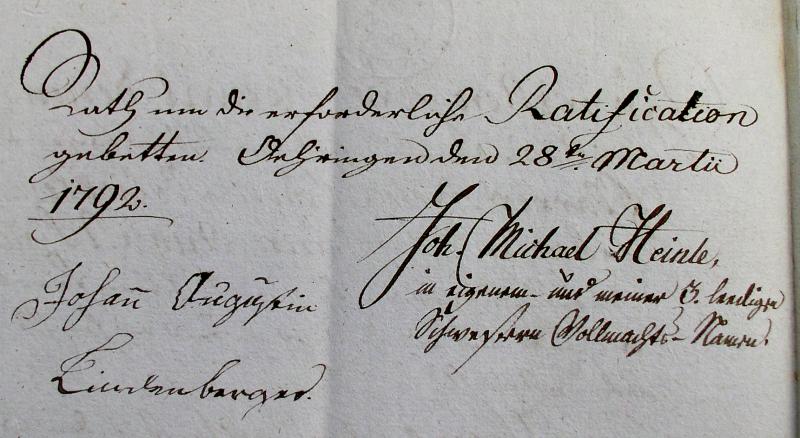 Rath um die erforderliche Ratification
gebetten. Oehringen den 28ten Martii
1792.
Joh. Michael Heinle,
in eigenem- und meiner 3. ledigen
Schwestern Vollmachts-Namen.
Johann Augustin
Lindenberger.